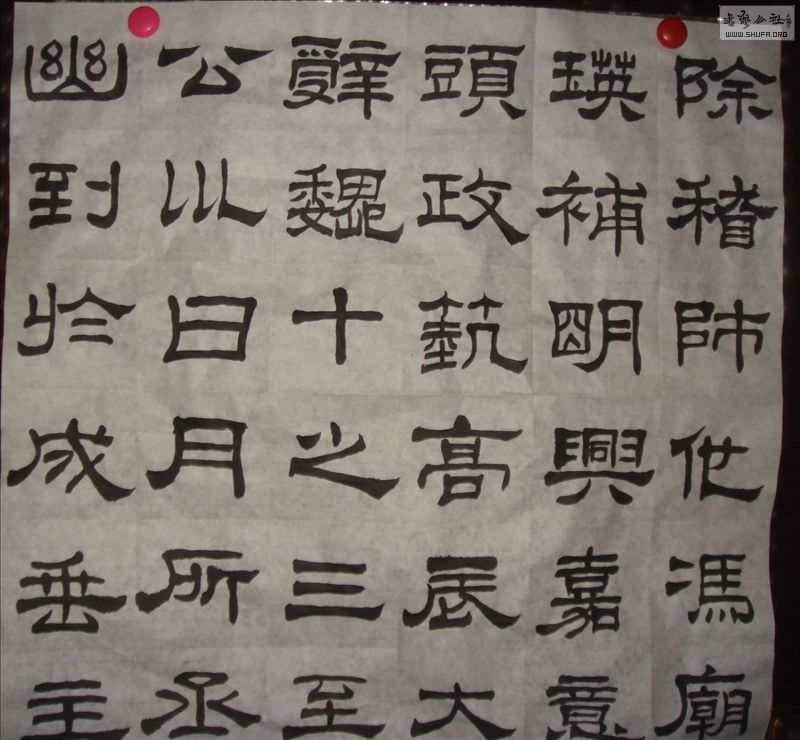 除稽師他馮廟
瑛補明興嘉意
頭政藝高辰大
辭魏十之三至
公川日月所丞
幽到於成垂主
公社
WWW.SHUFA.ORG